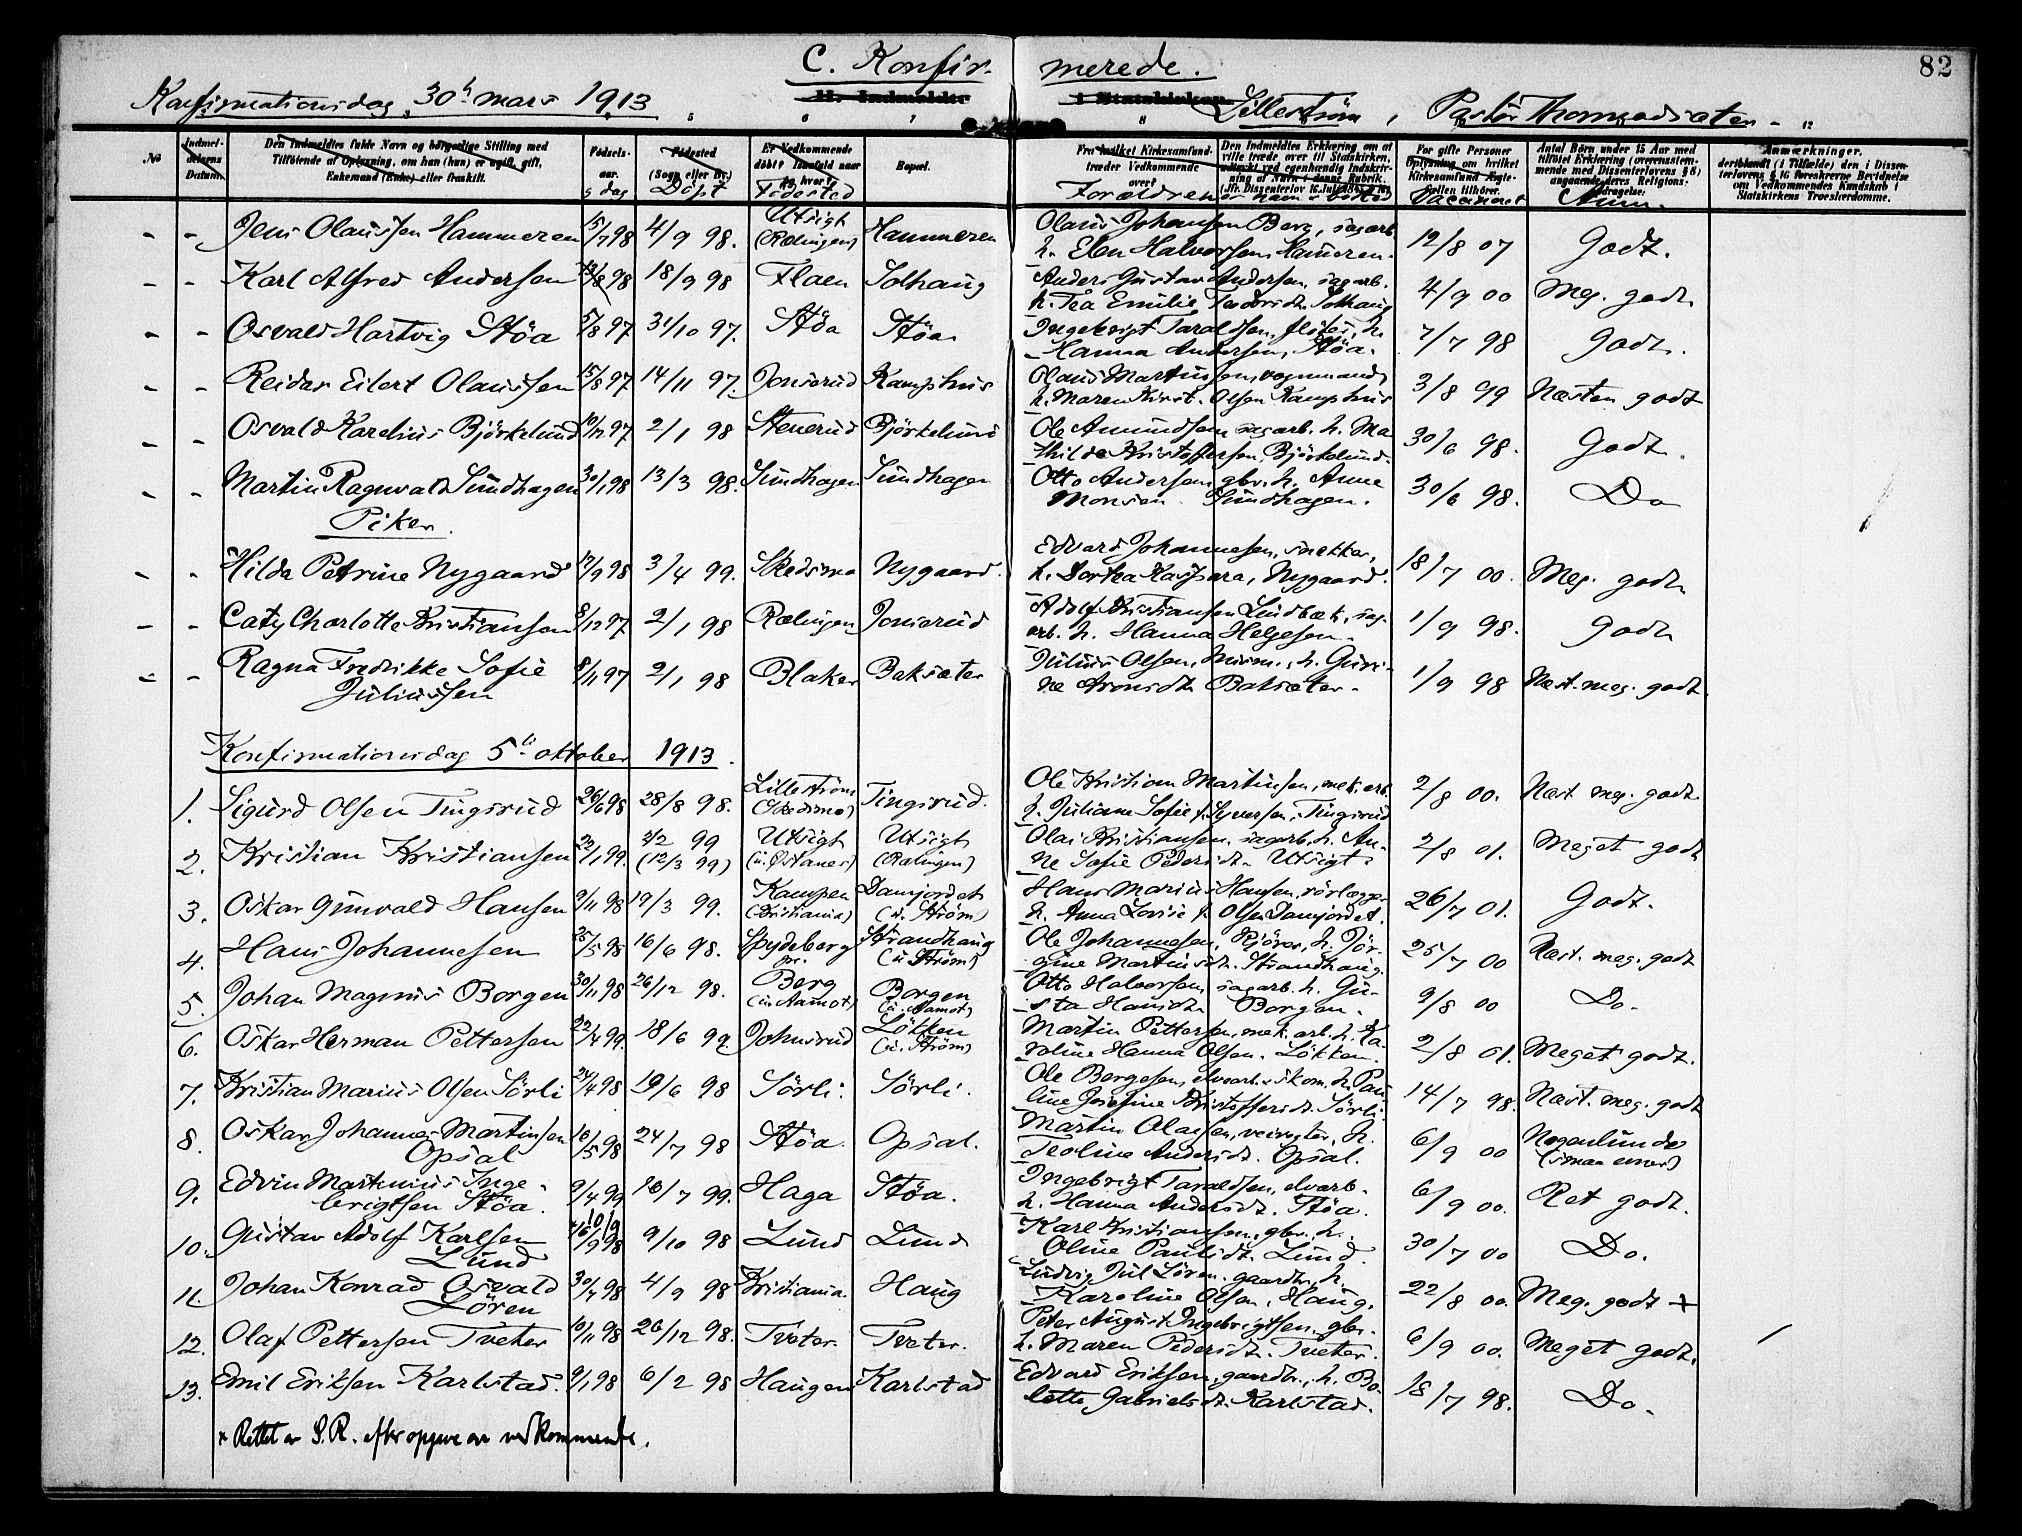 82
C. Konfir- merede.
Konfirmationsdag 30te mars 1913 Lillestrøm, Pastor Thomes
No
Indmeldelsens Datum.
Den Indmeldtes fulde Navn og borgerlige Stilling med Tilføiende af Oplysning, om han (hun) er ugift, gift, Enkemand (Enke) eller fraskilt.
Fødsels-aar. & dag
Fødested (Sogn eller By.) Døpt
Er Vedkommende døbt? Isaafald naar og hvor? Fødested
Bopæl.
Fra hvilket Kirkesamfund træder Vedkommende over? Forældrenes navn & bosted
Den Indmeldtes Erklæring om at ville træde over til Statskirken,
For gifte Personer Oplysning om hvilket Kirkesamfund Ægtefællen tilhører. Vaccineret
Antal Børn under 15 Aar med tilføiet Erklæring (overensstemmende med Dissenterlovens § 6) angaaende deres Religionsopdragelse. Anm.
Anmærkninger. deriblandt (i Tilfælde) den i Dissenterlovens § 16 foreskrevne Bevidnelse om Vedkommendes Kundskab i Statskirkens Troeslærdomme.
- - Jens Olaussen Hammeren 15/7 98 4/9 98. Utsigt (Rælingen) Hammeren Olaus Johansen Berg, sagarb. h. Elen Halvorsen Hameren. 12/8 07 Godt.
- - Karl Alfred Andersen 18/9 98 Flaen Solhaug Anders Gustav Andersen, sagarb. h. Tea Emilie Solhaug 4/9 00 Meg. godt
- - Osvald Hartvig Støa 5/8 97 31/10 97. Støa Støa. Ingebrigt Taraldsen, fløter, h. Hanna Andersen, Støa. 7/7 98 Godt.
- - Reidar Eilert Olaussen 15/8 97 14/11 97. Jonsrud Kamphus Olaus Martinsen, vognmand, h. Maren Krist. Olsen Kamphus 3/8 99 Næsten godt
- - Osvald Karelius Björkelund 10/12 97 2/1 98 Stenerud Björkelund Ole Amundsen sagarb. h. Mathilde Kristoffersen, Björkelund. 30/6 98. Godt.
- - Martin Ragnvald Sundhagen 30/1 98 13/3 98. Sundhagen Sundhagen Otto Andersen gbr. h. Anne Monsen Sundhagen. 30/6 98. Do
Piker.
- - Hilda Petrine Nygaard 12/9 98 3/4 99. Skedsmo Nygaard. Edvard Johannesen, snekker, h. Dortea Kaspara, Nygaard. 18/7 00. Meg. godt
- - Caty Charlotte Kristiansen 8/12 97 2/1 98 Rælingen Jonsrud Adolf Kristiansen Lindbæk, sagarb. h. Hanna Helgesen. 1/9 98. Godt
- - Ragna Fredrikke Sofie Juliussen 8/11 97 2/1 98 Blaker Baksæter Julius Olsen, h. Gurine Aronsdt. Baksæter. 1/9 98 Næst. meg. godt
Konfirmationsdag 5te oktober 1913.
1. Sigurd Olsen Tingsrud 26/6 98 28/8 98. Lillestrøm (Skedsmo) Tingsrud. Ole Kristian Martinsen, mek. arb. h. Juliane Sofie f. Syversen, Tingsrud 2/8 00. Næst meg. godt
2. Kristian Kristiansen 22/1 99. 2/2 99 (12/3 99) Utsigt Utsigt (Rælingen) Olai Kristiansen, sagarb. h. Anne Sofie Pedersdt. Utsigt. 2/8 01. Meget godt
3. Oskar Gunvald Hansen 9/11 98 19/3 99. Kampen (Kristiania) Damjordet (v. Strøm) Hans Marius Hansen, rørlægger, h. Anna Lovise f. Olsen Damjordet. 26/7 01. Godt.
4. Hans Johannesen 25/5 98 16/6 98. Spydeberg pr. Strandhaug (v. Strøm) Ole Johannesen, kjører, h. Jørgine Martinsdt. Strandhaug. 25/7 00 Næst. meg. godt
5. Johan Magnus Borgen 30/11 98 26/12 98. Berg (u. Aamot) Borgen (u. Aamot) Otto Halvorsen, sagarb. h. Gusta Hansdt. Borgen. 9/8 00 Do.
6. Oskar Herman Pettersen 22/4 99. 18/6 99. Johnsrud Løkken (v. Strøm) Martin Pettersen, mek. arb. h. Karoline Hanna Olsen. Løkken. 2/8 01. Meget godt.
7. Kristian Marius Olsen Sörli 24/4 98 19/6 98 Sörli. Sörli. Ole Bergesen, h. Pauline Josefine Kristoffersdt. Sörli. 14/7 98. Næst. meg. godt
8. Oskar Johannes Martinsen Opsal 16/5 98 24/7 98 Støa. Opsal. Martin Olaesen, veivogter, h. Teoline Andersdt. Opsal. 6/9 00 Nogenlunde (smaa evner)
9. Edvin Martinius Ingebrigtsen Støa. 9/4 99 16/7 99. Haga Støa. Ingebrigt Taraldsen, elvarb. h. Hanna Andersdt. Støa. 6/9 00. Ret godt.
10. Gustav Adolf Karlsen Lund 98 9/10 98 Lund Lund Karl Kristiansen, gbr. h. Oline Paulsdt. Lund. 30/7 00 Do.
11. Johan Konrad Osvald Sören 30/7 98 4/9 98 Kristiania. Haug Ludvig Jul Sören. gaardbr. h. Karoline Olsen, Haug. 22/8 00. Meg. godt +
12. Olaf Pettersen Tveter 10/11 98 26/12 98. Tveter. Tveter. Peter August Ingebrigtsen, gbr. h. Maren Pedersdt. Tveter. 6/9 00. Meget godt.
13. Emil Eriksen Karlstad. 9/1 98 6/2 98 Haugen Karlstad Edvard Eriksen, gaardbr., h. Bolette Gabrielsdt. Karlstad. 18/7 98. Do.
× Rettet av S.R. efter opgave av vedkommende.